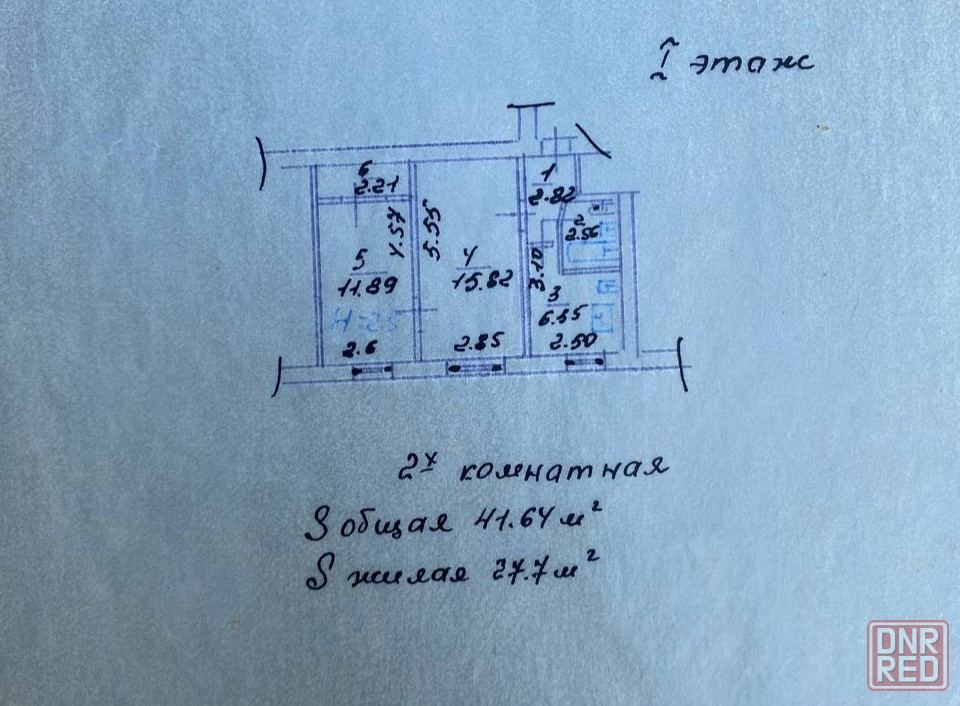 I этаж
6
2.21
1
2.82
2
2.56
4.57
5.55
5
11.89
4
15.82
3.10
3
6.35
H-2.5
2.6
2.85
2.50
2х комнатная
S общая 41.64 м²
S жилая 27.7 м²
DNR
RED